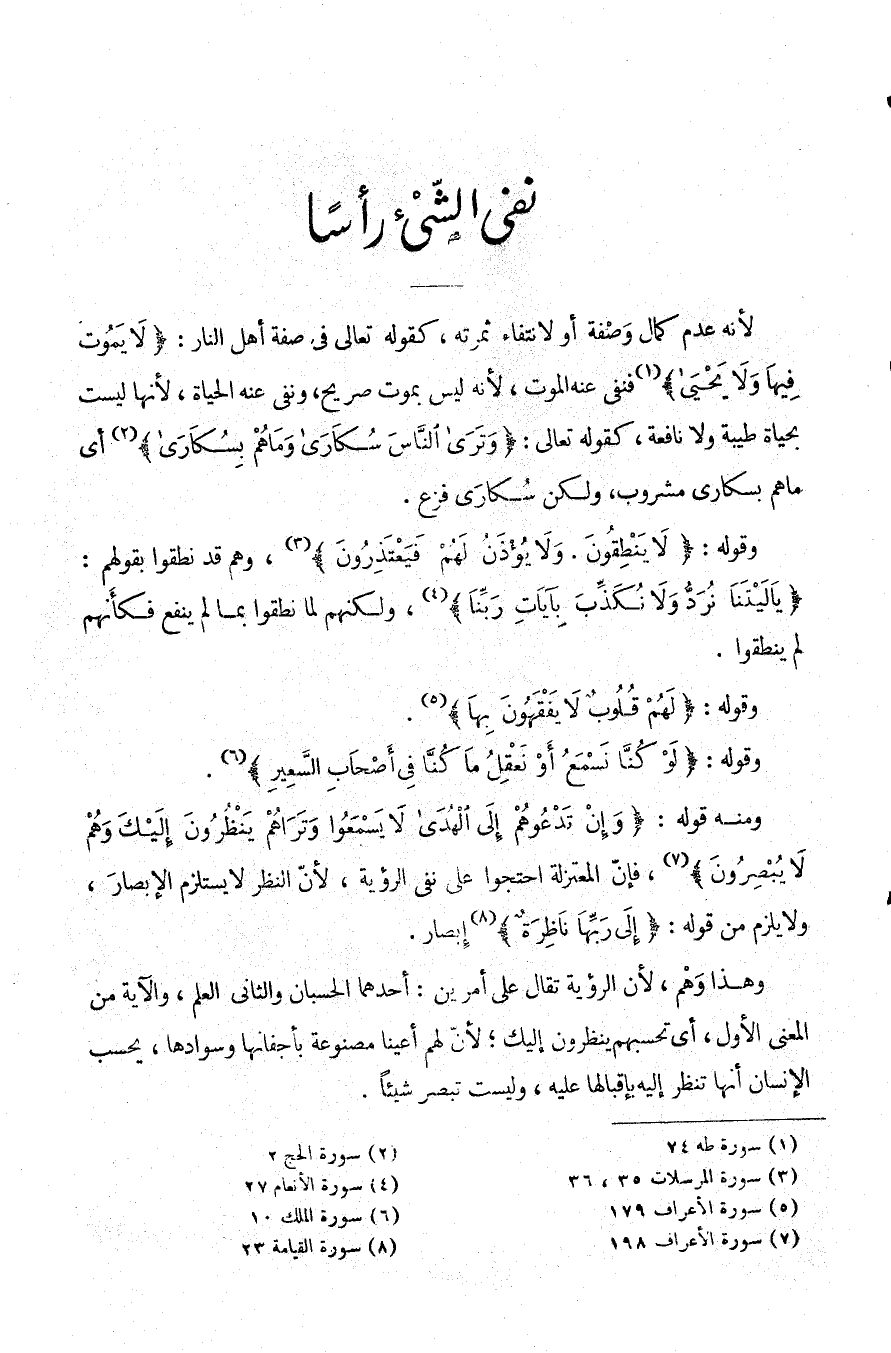 نفى الشّىْء رأسًا
لأنه عدم كمال وَصْفة أو لانتفاء ثمرته ، كقوله تعالى فى صفة أهل النار : ﴿ لَا يَمُوت
فِيهَا وَلَا يَحْيَىٰ ﴾(١) فنفى عنه الموت ، لأنه ليس بموت صريح، ونفى عنه الحياة ، لأنها ليست
بحياة طيبة ولا نافعة ، كقوله تعالى : ﴿ وَتَرَىٰ ٱلنَّاسَ سُكَارَىٰ وَمَاهُمْ بِسُكَارَىٰ ﴾(٢) أى
ماهم بسكارى مشروب، ولكن سُكارَى فزع .
وقوله : ﴿ لَا يَنْطِقُونَ . وَلَا يُؤْذَنُ لَهُمْ فَيَعْتَذِرُونَ ﴾(٣) ، وهم قد نطقوا بقولهم :
﴿ يَالَيْتَنَا نُرَدُّ وَلَا نُكَذِّبَ بِآيَاتِ رَبِّنَا ﴾(٤) ، ولكنهم لما نطقوا بما لم ينفع فكأنهم
لم ينطقوا .
وقوله : ﴿ لَهُمْ قُلُوبٌ لَا يَفْقَهُونَ بِهَا ﴾(٥) .
وقوله : ﴿ لَوْ كُنَّا نَسْمَعُ أَوْ نَعْقِلُ مَا كُنَّا فِى أَصْحَابِ السَّعِيرِ ﴾(٦) .
ومنه قوله : ﴿ وَإِنْ تَدْعُوهُمْ إِلَى ٱلْهُدَىٰ لَا يَسْمَعُوا وَتَرَاهُمْ يَنْظُرُونَ إِلَيْكَ وَهُمْ
لَا يُبْصِرُونَ ﴾(٧) ، فإنّ المعتزلة احتجوا على نفى الرؤية ، لأنّ النظر لا يستلزم الإبصارَ ،
ولا يلزم من قوله : ﴿ إِلَى رَبِّهَا نَاظِرَةٌ ﴾(٨) إبصار .
وهذا وَهْم ، لأن الرؤية تقال على أمرين : أحدهما الحسبان والثانى العلم ، والآية من
المعنى الأول ، أى تحسبهم ينظرون إليك ؛ لأنّ لهم أعينا مصنوعة بأجفانها وسوادها ، يحسب
الإنسان أنها تنظر إليه بإقبالها عليه ، وليست تبصر شيئاً .
(١) سورة طه ٧٤ (٢) سورة الحج ٢
(٣) سورة المرسلات ٣٥ ، ٣٦ (٤) سورة الأنعام ٢٧
(٥) سورة الأعراف ١٧٩ (٦) سورة الملك ١٠
(٧) سورة الأعراف ١٩٨ (٨) سورة القيامة ٢٣